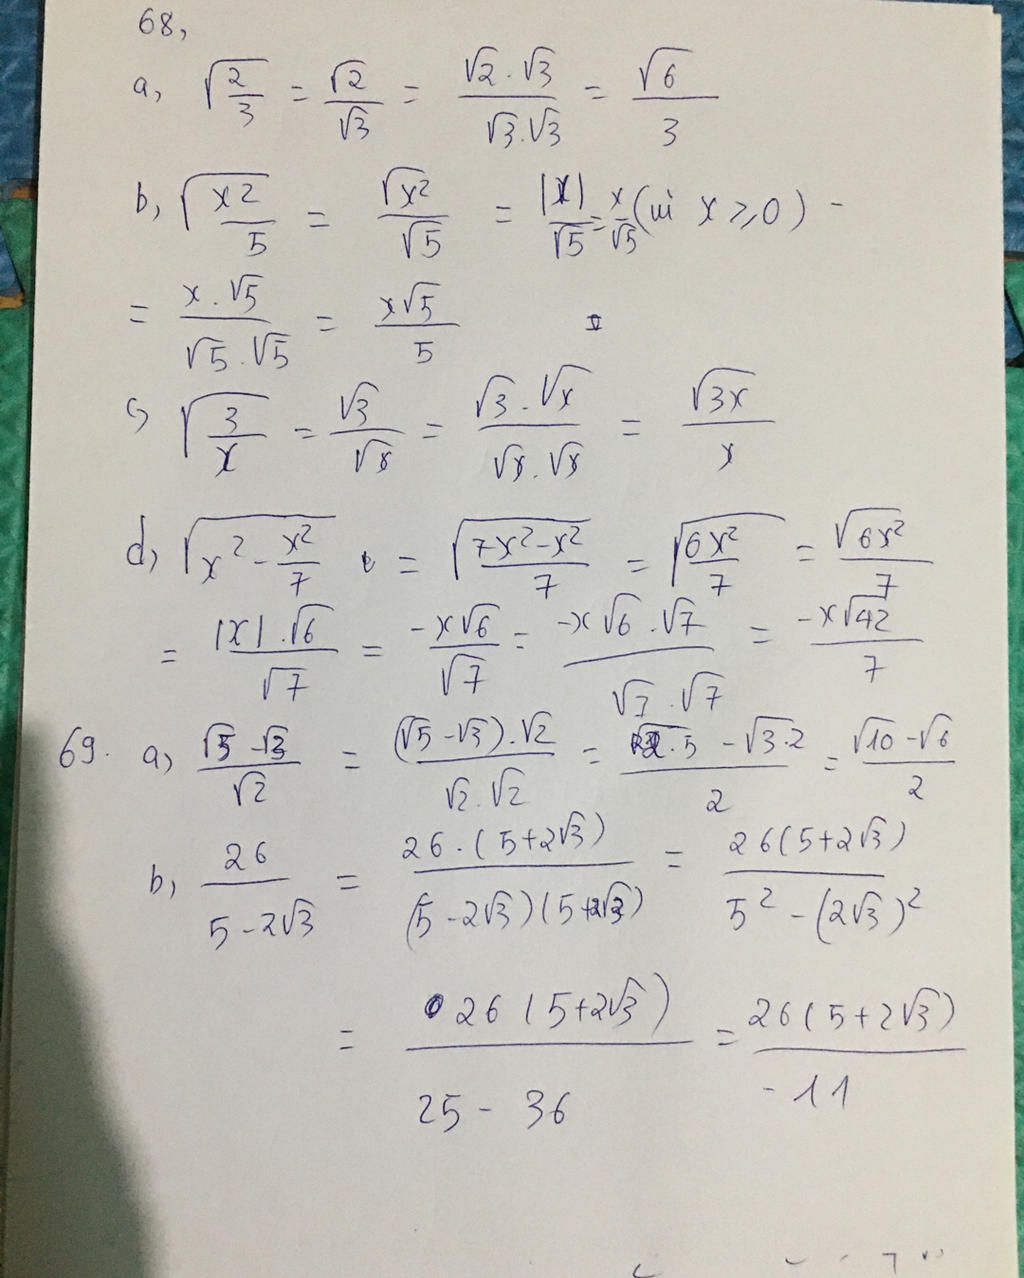 68,
a, √(2/3) = √2/√3 = (√2 . √3)/(√3 . √3) = √6/3
b, √(x²/5) = √x²/√5 = |x|/√5 = x/√5 (vì x ≥ 0) -
= (x . √5)/(√5 . √5) = x√5/5
c, √(3/x) = √3/√x = (√3 . √x)/(√x . √x) = √3x/x
d, √(x² - x²/7) = √((7x² - x²)/7) = √(6x²/7) = √6x²/7
= (|x| . √6)/√7 = -x√6/√7 = (-x√6 . √7)/(√7 . √7) = -x√42/7
69. a, (√5 - √3)/√2 = ((√5 - √3) . √2)/(√2 . √2) = (√2.5 - √3.2)/2 = (√10 - √6)/2
b, 26/(5 - 2√3) = (26 . (5 + 2√3))/((5 - 2√3)(5 + 2√3)) = (26(5 + 2√3))/(5² - (2√3)²)
= (26(5 + 2√3))/(25 - 36) = (26(5 + 2√3))/(-11)